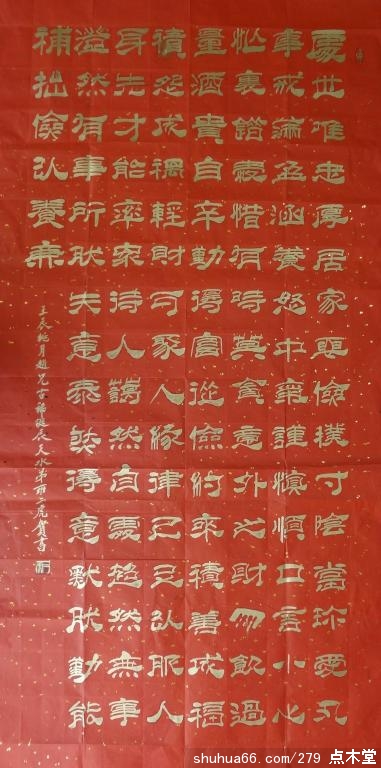 處世唯忠厚居家儉樸寸陰當珍愛凡
事戒滿盈涵養怒中氣謹慎順口言小心
忙裏錯愛惜有時莫貪意外之財毋飲過
量酒貴自辛勤得富從儉約來積善成福
積怨成禍輕財可聚人緣律己足以服人
身先才能率眾待人藹然自處超然無事
澄然有事斷然失意泰然得意默然勤能
補拙儉以養廉
壬辰桃月趙兄天水弟書
shuhua66.com/279 点木堂